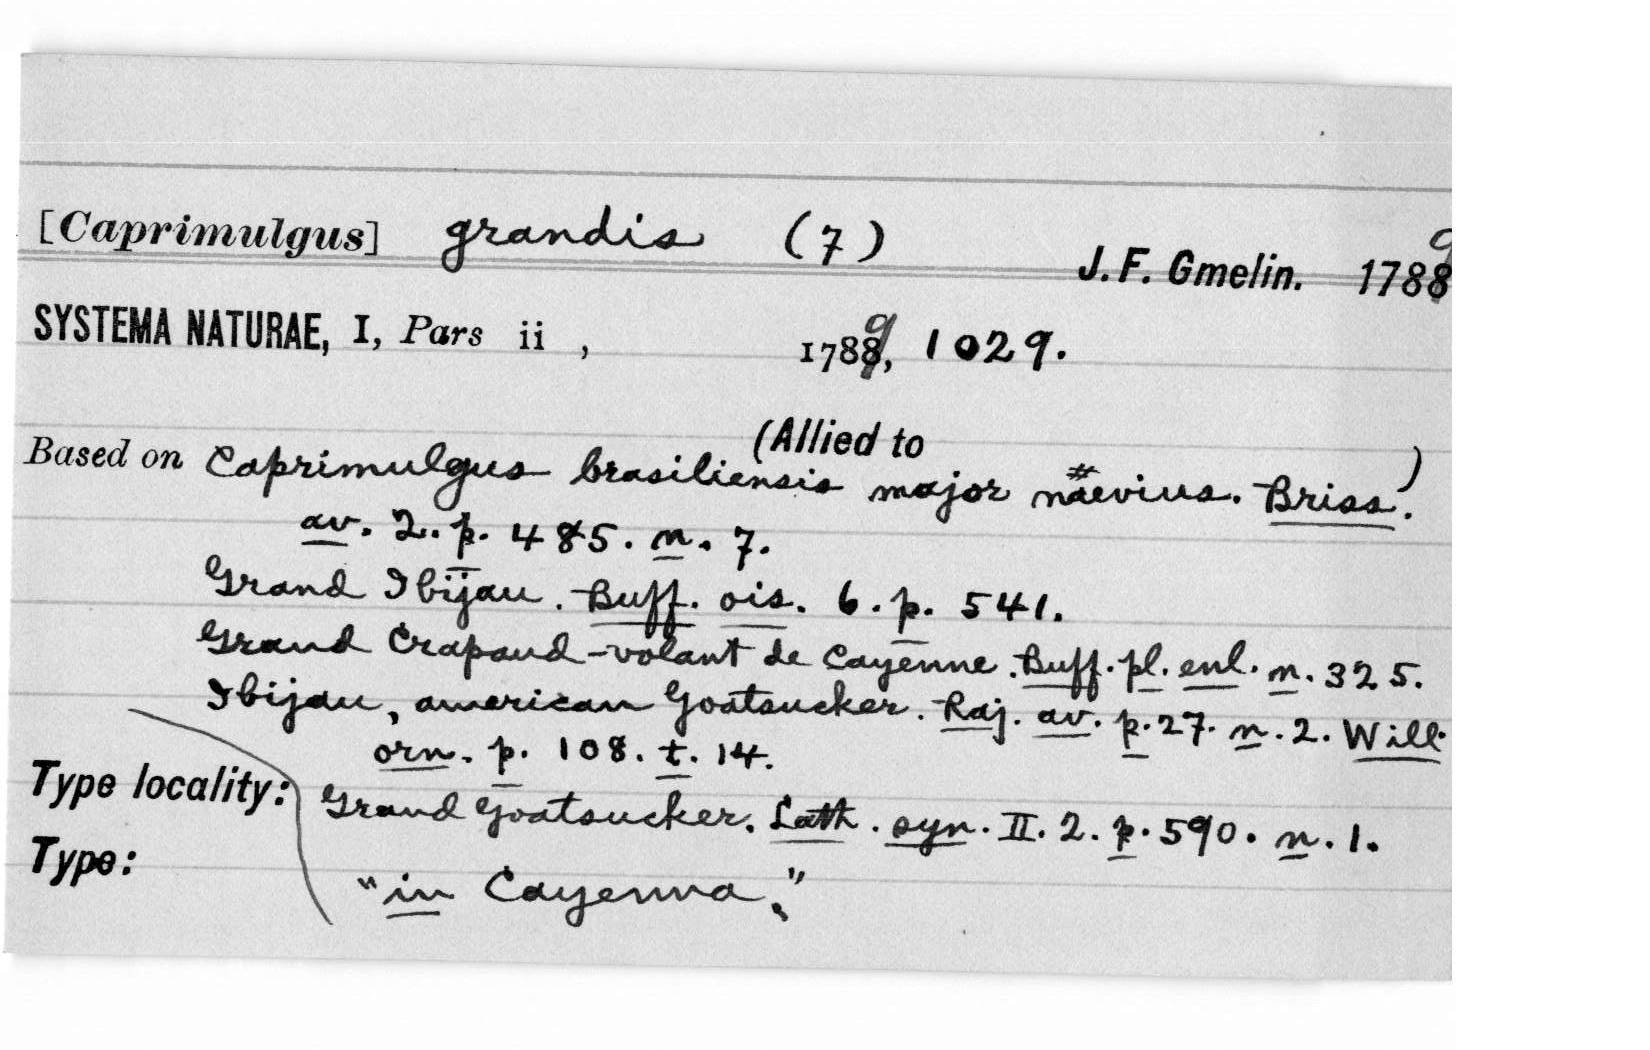 [Caprimulgus] grandis (7)
J. F. Gmelin. 1789
SYSTEMA NATURAE, I, Pars ii , 1789, 1029.
(Allied to
Based on Caprimulgus brasiliensis major naevius. Briss.)
av. 2. p. 485. n. 7.
Grand Ibijau. Buff. ois. 6. p. 541.
Grand Crapaud-volant de Cayenne. Buff. pl. enl. n. 325.
Ibijau, american Goatsucker. Raj. av. p. 27. n. 2. Will.
orn. p. 108. t. 14.
Type locality: Grand Goatsucker. Lath. syn. II. 2. p. 590. n. 1.
Type: "in Cayenna."